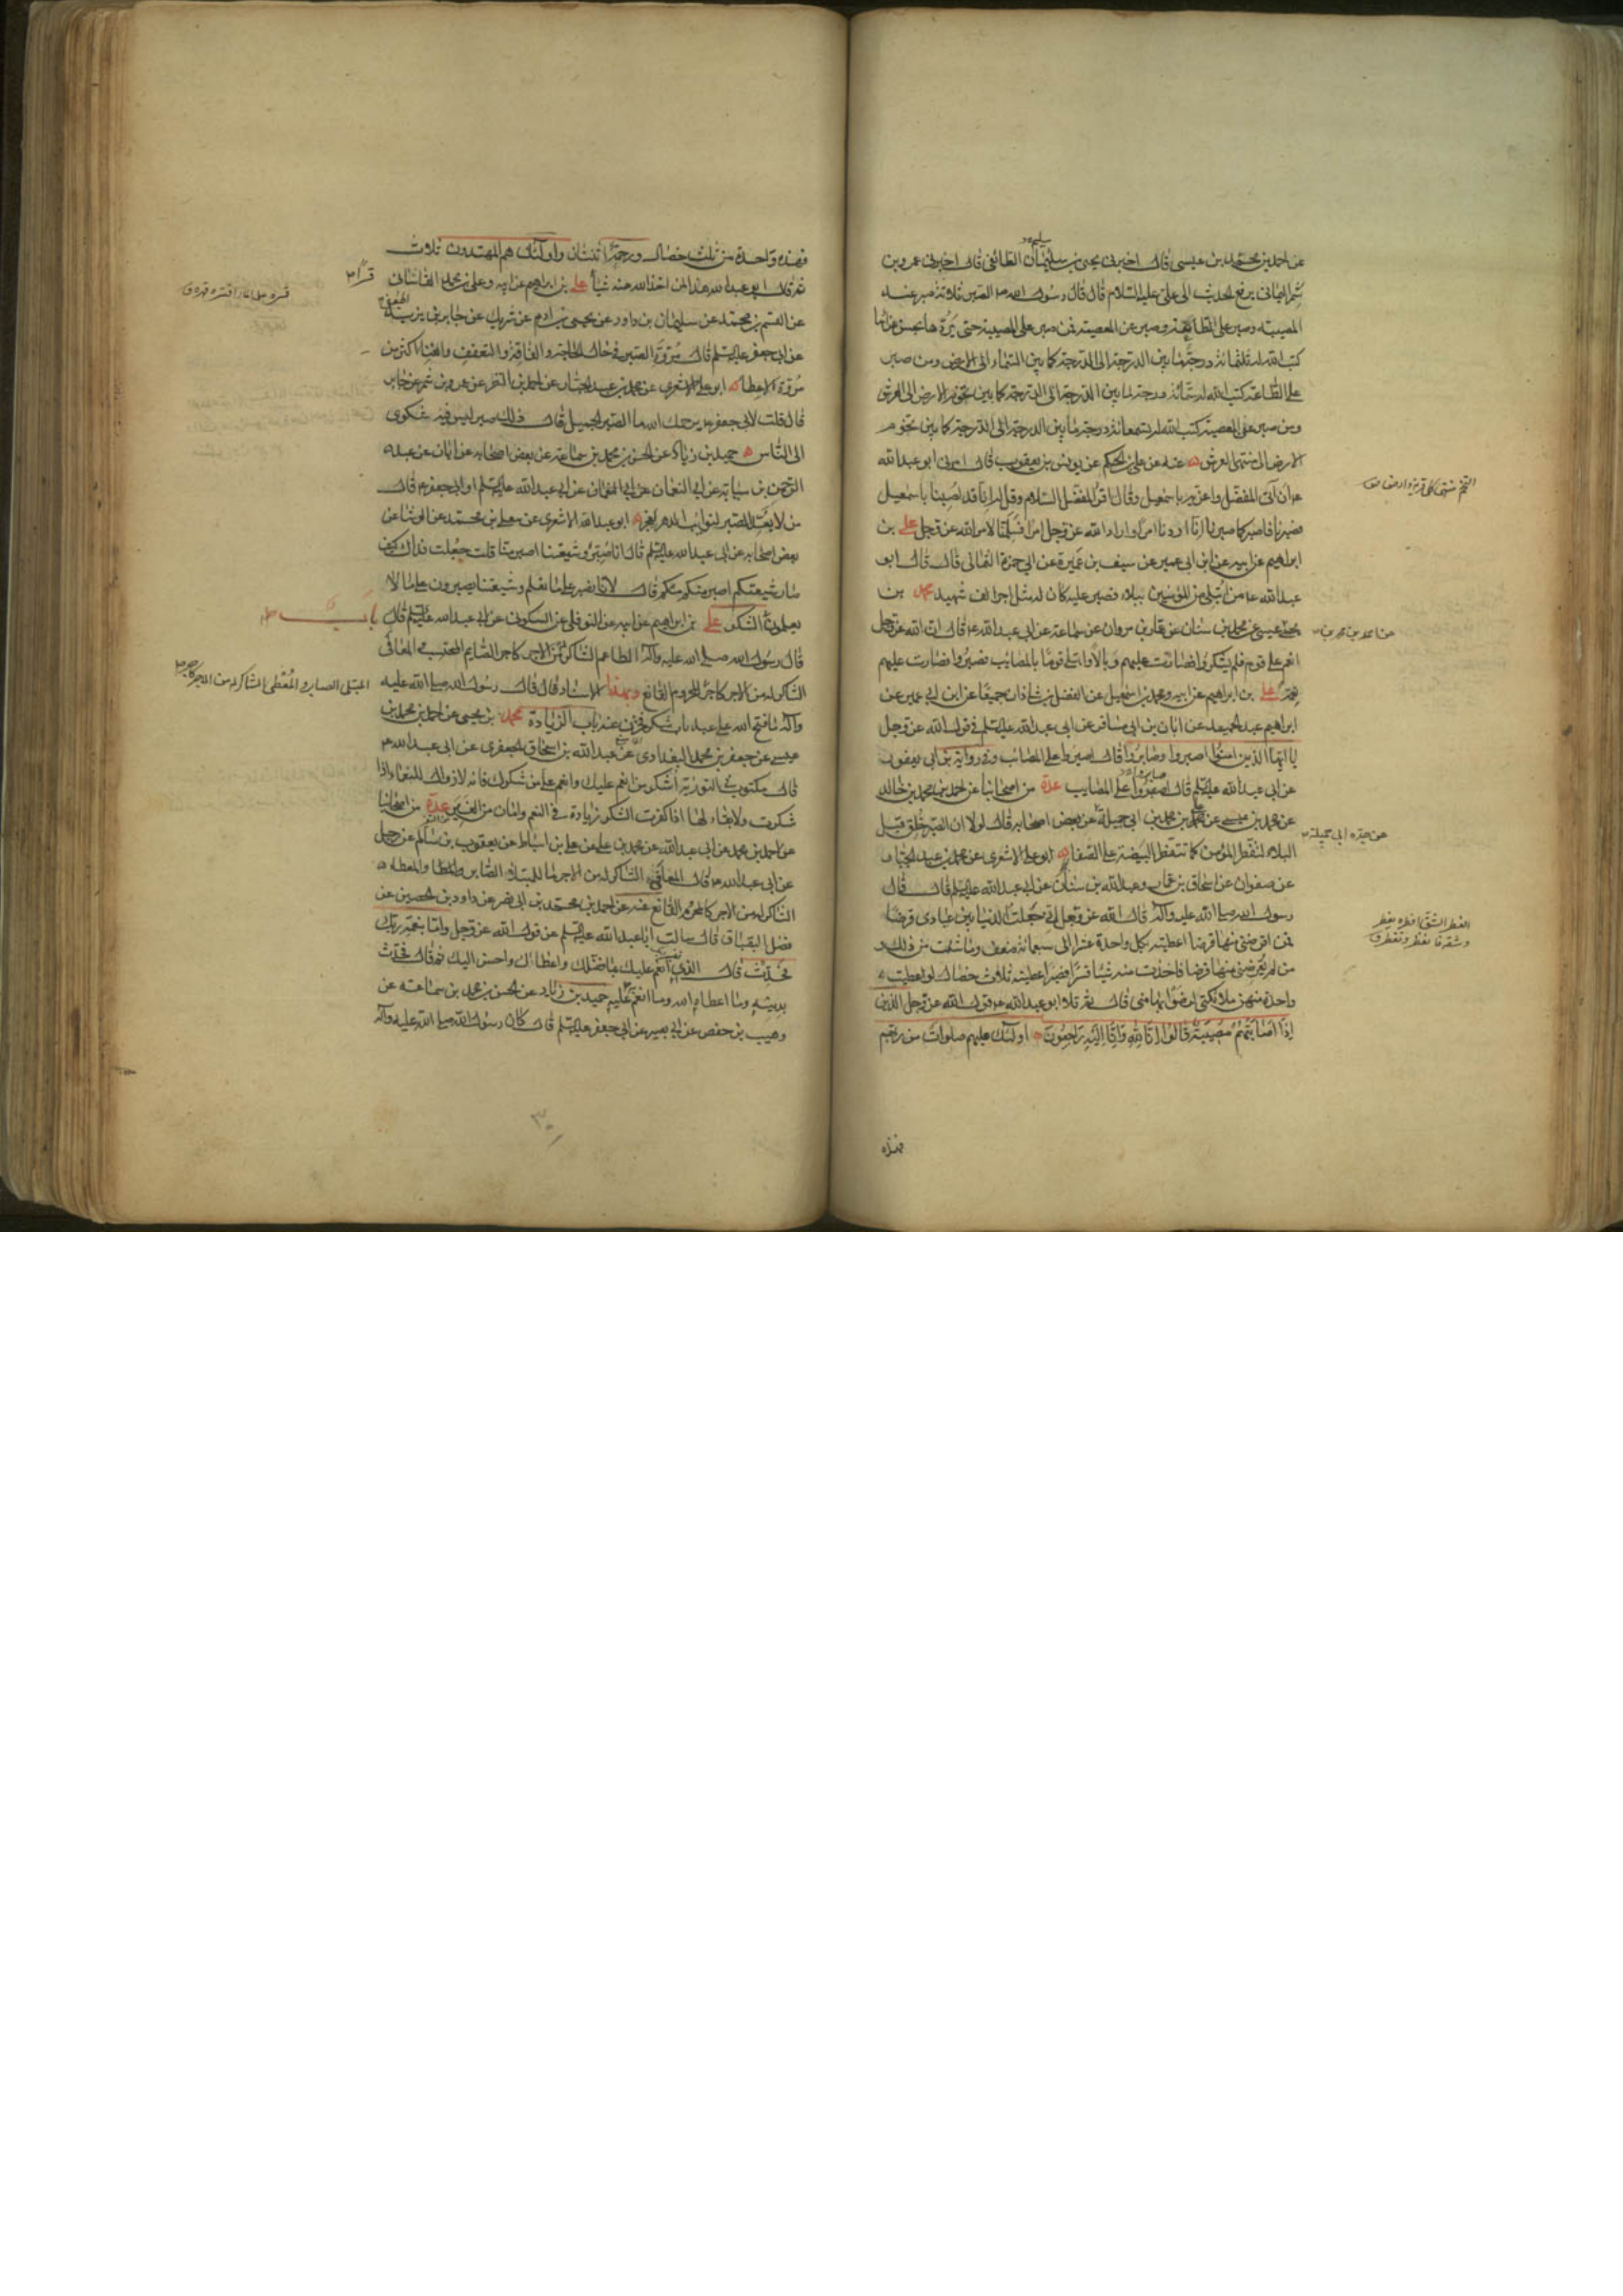 عن احمد بن محمد بن عيسى قال اخبرنى يحيى بن سليمان الطائفى قال اخبرنى عمرو بن
شمر اليمانى يرفع الحديث الى على عليه السلام قال قال رسول الله ص الصبر ثلاثة صبر عند
المصيبة وصبر على الطاعة وصبر عن المعصية فمن صبر على المصيبة حتى يردها بحسن عزائها
كتب الله له ثلثمائة درجة ما بين الدرجة الى الدرجة كما بين السماء الى الارض ومن صبر
على الطاعة كتب الله له ستمائة درجة ما بين الدرجة الى الدرجة كما بين تخوم الارض الى العرش
ومن صبر على المعصية كتب الله له تسعمائة درجة ما بين الدرجة الى الدرجة كما بين تخوم
الارض الى منتهى العرش عنه عن على بن الحكم عن يونس بن يعقوب قال امرنى ابو عبد الله
ع ان آتى المفضل واعزيه باسمعيل وقال اقرأ المفضل السلام وقل له انا قد اصبنا باسمعيل
فصبرنا فاصبر كما صبرنا انا اردنا امرا واراد الله عز وجل امرا فسلمنا لامر الله عز وجل على بن
ابراهيم عن ابيه عن ابن ابى عمير عن سيف بن عميرة عن ابى حمزة الثمالى قال قال ابو
عبد الله ع من ابتلى من المؤمنين ببلاء فصبر عليه كان له مثل اجر الف شهيد محمد بن
يحيى عيسى عن محمد بن سنان عن عمار بن مروان عن سماعة عن ابى عبد الله ع قال ان الله عز وجل
انعم على قوم فلم يشكروا فصارت عليهم وبالا وابتلى قوما بالمصائب فصبروا فصارت عليهم
نعمة على بن ابراهيم عن ابيه ومحمد بن اسمعيل عن الفضل بن شاذان جميعا عن ابن ابى عمير عن
ابراهيم عبد الحميد عن ابان بن ابى مسافر عن ابى عبد الله عليه السلم فى قول الله عز وجل
يا ايها الذين امنوا اصبروا وصابروا قال اصبروا على المصائب وفى رواية بن ابى يعفور
عن ابى عبد الله عليه السلم قال صابروا على المصايب عدة من اصحابنا عن احمد بن محمد بن خالد
عن محمد بن عيسى عن على بن محمد بن ابى جميلة عن بعض اصحابه قال لولا ان الصبر خلق قبل
البلاء لتفطر المؤمن كما تتفطر البيضة على الصفا ابو على الاشعرى عن محمد بن عبد الجبار
عن صفوان عن اسحاق بن عمار وعبد الله بن سنان عن ابى عبد الله عليه السلم قال قال
رسول الله صلى الله عليه وآله قال الله عز وجل انى جعلت الدنيا بين عبادى قرضا
فمن اقرضنى منها قرضا اعطيته بكل واحدة عشرا الى سبعمائة ضعف وما شئت من ذلك و
من لم يقرضنى منها قرضا فاخذت منه شيئا قسرا فصبر اعطيته ثلاث خصال لو اعطيت
واحدة منهن ملائكتى لرضوا بها منى قال ثم تلا ابو عبد الله ع قول الله عز وجل الذين
إذا أصابتهم مصيبة قالوا إنا لله وإنا إليه راجعون اولئك عليهم صلوات من ربهم
فهذه
عن احمد بن محمد بن
عن جده ابى جميلة
فهذه واحدة من ثلث خصال ورحمة اثنتان واولئك هم المهتدون ثلاث
ثم قال ابو عبد الله هذا لمن اخذ الله منه شيئا على بن ابراهيم عن ابيه وعلى بن محمد القاسانى
عن القسم بن محمد عن سليمان بن داود عن يحيى بن ادم عن شريك عن جابر بن يزيد
عن ابى جعفر عليه السلم قال مروة الصبر فى حال الحاجة والفاقة والتعفف والغنا اكثر من
مروة الاعطا ابو على الاشعرى عن محمد بن عبد الجبار عن احمد بن النضر عن عمرو بن شمر عن جابر
قال قلت لابى جعفر ع يرحمك الله ما الصبر الجميل قال ذلك صبر ليس فيه شكوى
الى الناس حميد بن زياد عن الحسن بن محمد بن سماعة عن بعض اصحابه عن ابان عن عبد
الرحمن بن سيابة عن ابى النعمان عن ابى عبد الله عليه السلم او ابى جعفر ع قال
من لا يعد الصبر لنوائب الدهر يعجز ابو عبد الله الاشعرى عن معلى بن محمد عن الوشا عن
بعض اصحابه عن ابى عبد الله عليه السلم قال انا صبر وشيعتنا اصبر منا قلت جعلت فداك كيف
صار شيعتكم اصبر منكم قال لانا نصبر على ما نعلم وشيعتنا يصبرون على ما لا
يعلمون الشكر على بن ابراهيم عن ابيه عن النوفلى عن السكونى عن ابى عبد الله عليه السلم قال
باب
قال رسول الله صلى الله عليه وآله الطاعم الشاكر له من الاجر كاجر الصايم المحتسب والمعافى
الشاكر له من الاجر كاجر المحروم القانع وبهذا الاسناد قال قال رسول الله صلى الله عليه
المبتلى الصابر والمعطى الشاكر له من الاجر كاجر
وآله ما فتح الله على عبد باب شكر فخزن عنه باب الزيادة محمد بن يحيى عن احمد بن محمد بن
عيسى عن جعفر بن محمد البغدادى عن عبد الله بن اسحاق الجعفرى عن ابى عبد الله ع
قال مكتوب فى التورية اشكر من انعم عليك وانعم على من شكرك فانه لا زوال للنعماء اذا
شكرت ولا بقاء لها اذا كفرت الشكر زيادة فى النعم وامان من الغير عدة من اصحابنا
عن احمد بن محمد عن ابى عبد الله عن محمد بن على عن على بن اسباط عن يعقوب بن سالم عن رجل
عن ابى عبد الله ع قال المعافى الشاكر له من الاجر ما للمبتلى الصابر والمعطى
الشاكر له من الاجر كالمحروم القانع عنه عن احمد بن محمد بن ابى نصر عن داود بن الحصين عن
فضل البقباق قال سالت ابا عبد الله عليه السلم عن قول الله عز وجل واما بنعمة ربك
فحدث قال الذى انعم عليك بما فضلك واعطاك واحسن اليك ثم قال فحدث
بدينه وما اعطاه الله وما انعم عليه حميد بن زياد عن الحسن بن محمد بن سماعة عن
وهيب بن حفص عن ابى بصير عن ابى جعفر عليه السلم قال كان رسول الله صلى الله عليه وآله